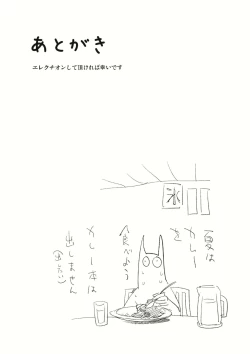 あとがき
エレクチオンして頂ければ幸いです
氷
夏は
カレー
を
食べよう
カレー本は
出しません